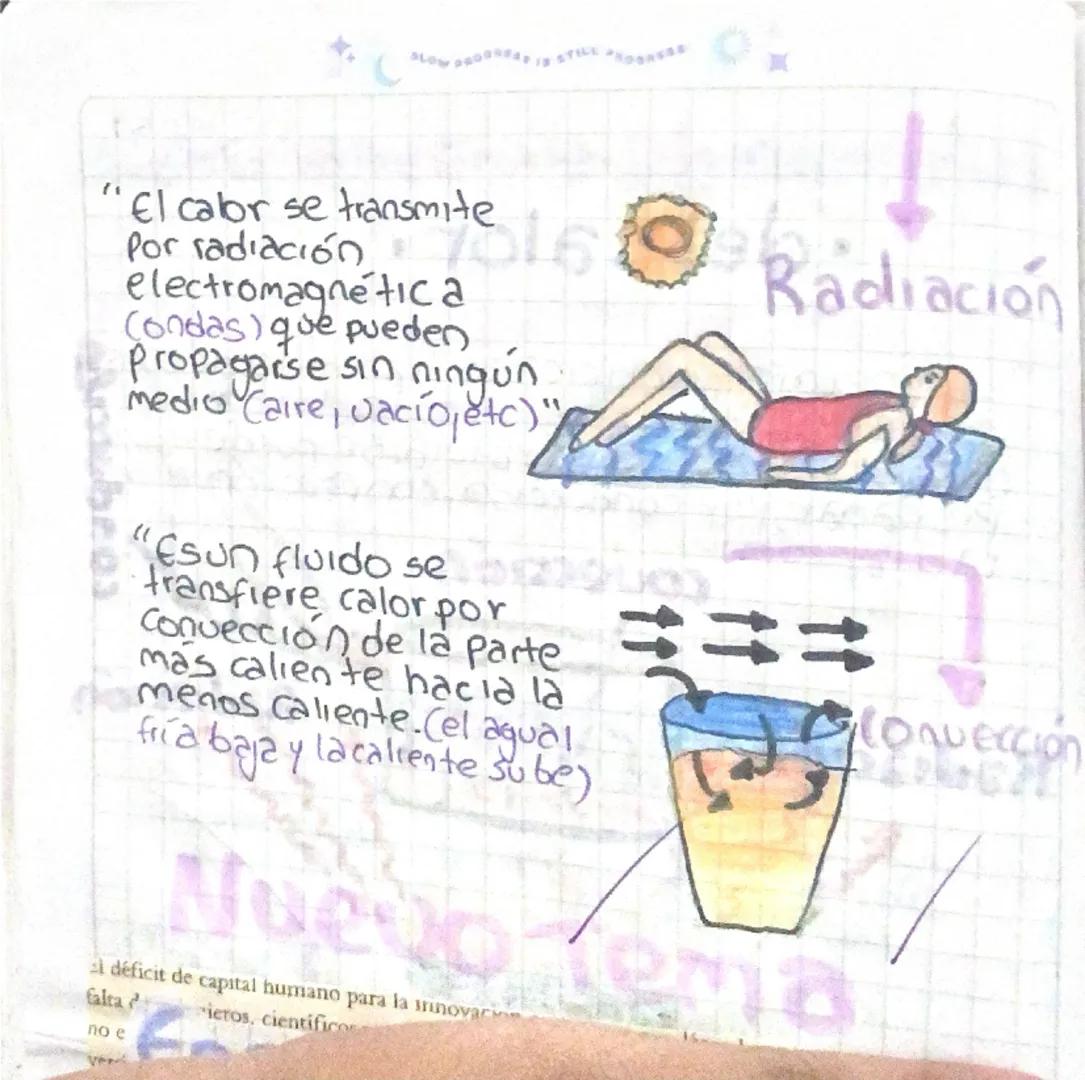 SLOW PROGRESS IS STILL PROGRESS
"El calor se transmite
por radiación
electromagnética
(ondas) que pueden
propagarse sin ningún
medio (aire, vacío, etc)"
Radiación
"Es un fluido se
transfiere calor por
convección de la parte
más caliente hacia la
menos caliente. (el agual
fría baja y la caliente sube)
Convección
El déficit de capital humano para la innovación
falta
científicos
no e